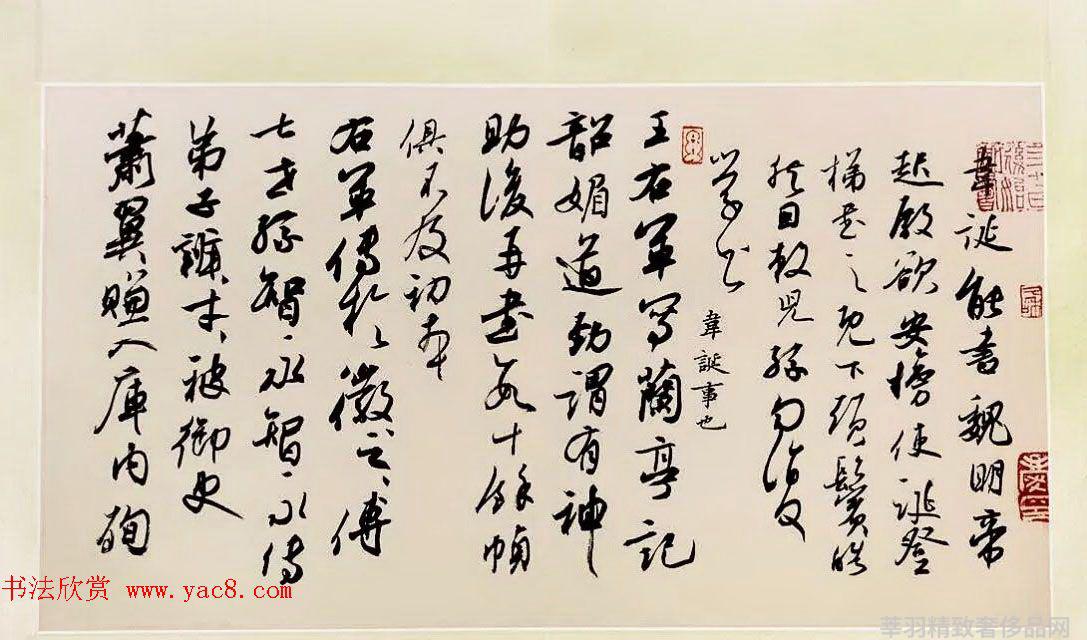 韋誕能書魏明帝
起殿欲安榜使誕登
梯書之既下頭鬢皓
然因敕兒孫勿復
學書
韋誕事也
王右軍寫蘭亭記
韶媚遒勁謂有神
助後再書數十餘幀
俱不及初本
右軍傳於徽之徽之傳
七世孫智永智永傳
弟子辯才辯才被御史
蕭翼賺入庫內殉
书法欣赏 www.yac8.com
莘羽精致奢侈品网